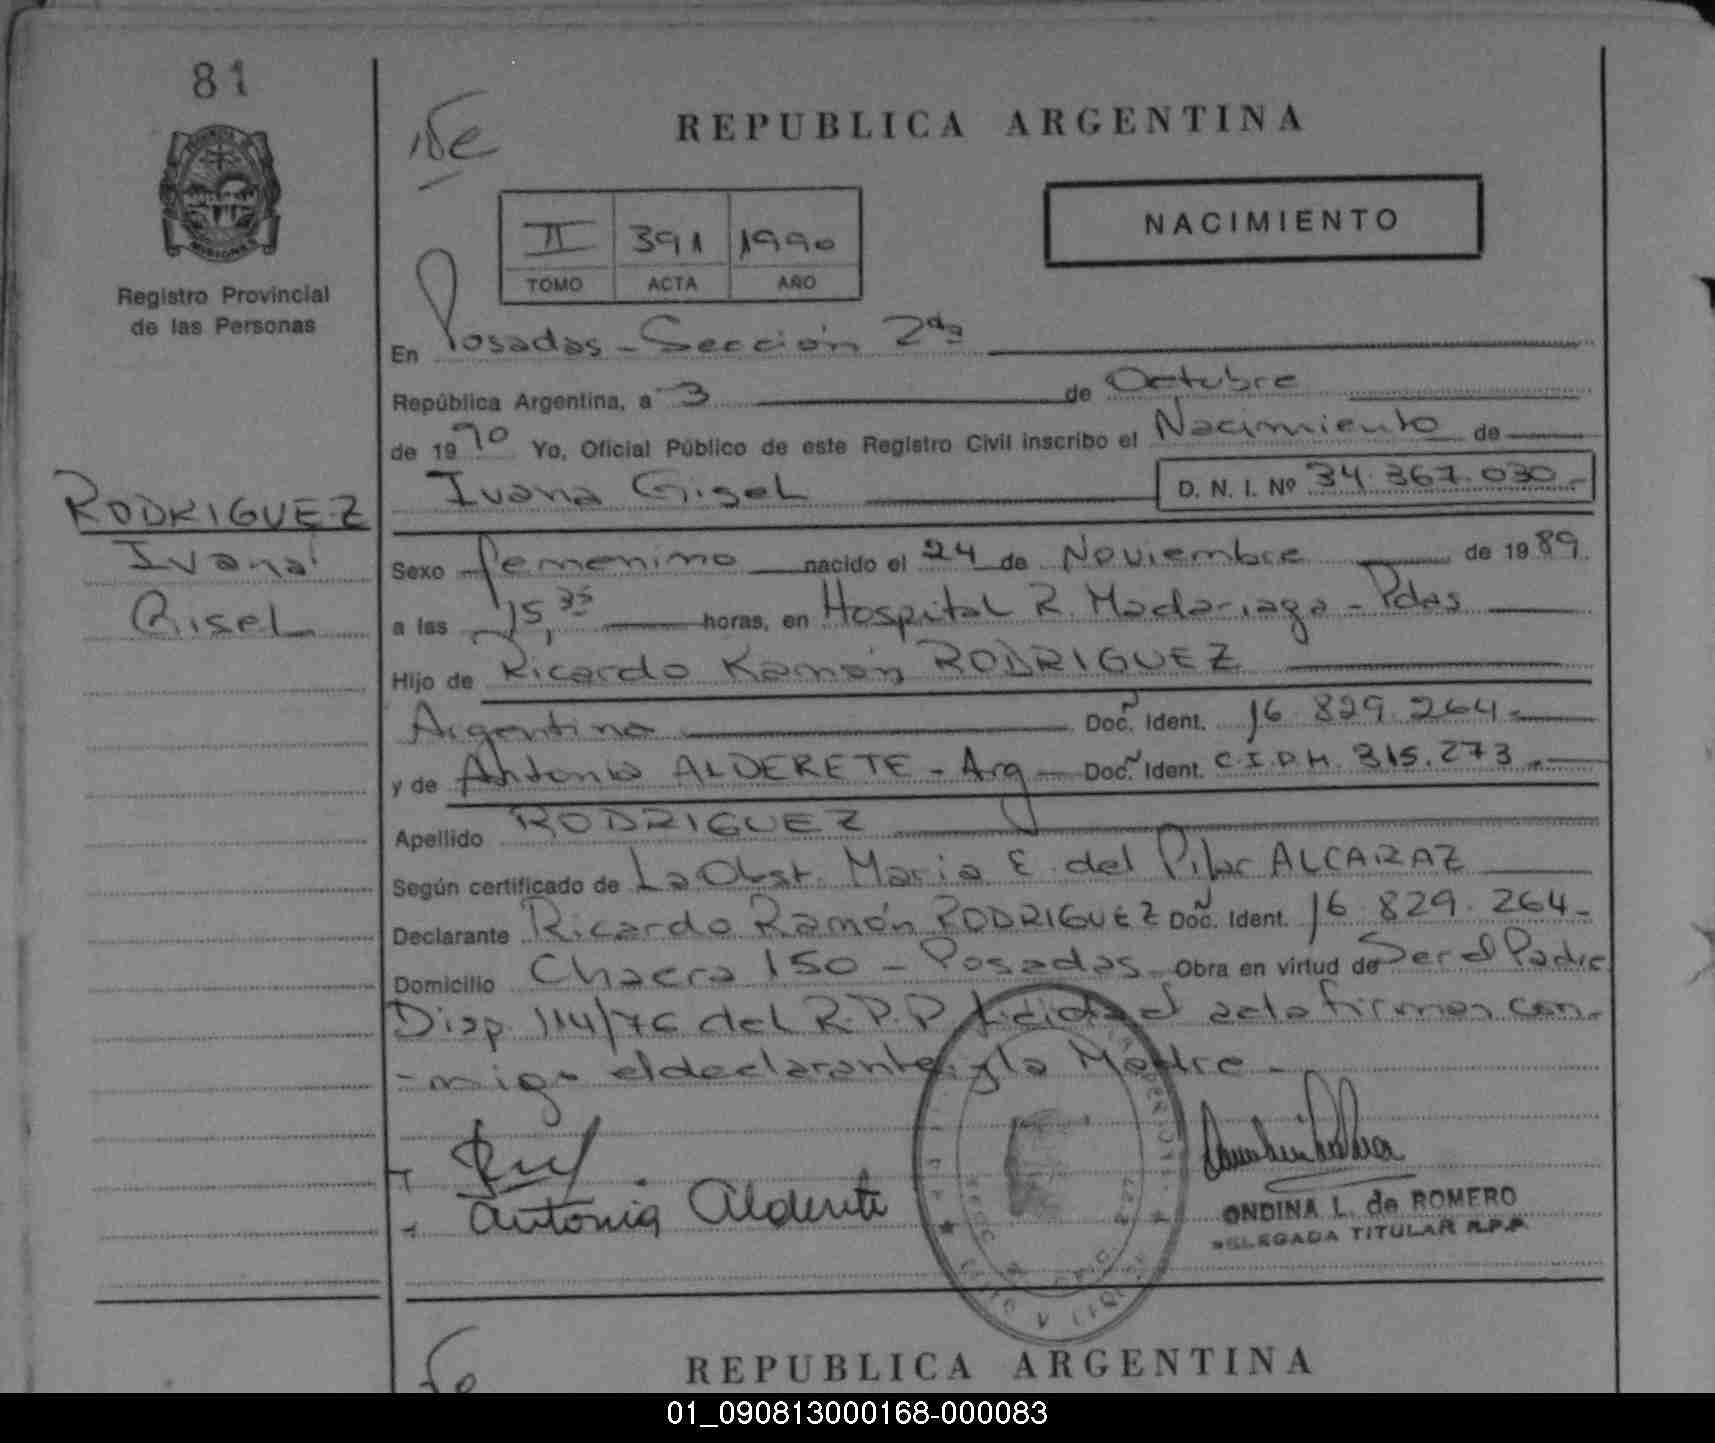 81
REPUBLICA ARGENTINA
NACIMIENTO
II 391 1990
TOMO ACTA AÑO
Registro Provincial
de las Personas
En Posadas - Sección 2da
República Argentina, a 3 de Octubre
de 1990 Yo, Oficial Público de este Registro Civil inscribo el Nacimiento de
Ivana Gisel D. N. I. Nº 34.367.030.-
RODRIGUEZ
Ivana
Gisel
Sexo femenino nacido el 24 de Noviembre de 1989
a las 15,35 horas, en Hospital R. Madariaga - Pdas
Hijo de Ricardo Ramón RODRIGUEZ
Argentino Doc. Ident. 16.829.264.-
y de Antonia ALDERETE - Arg Doc. Ident. C.I.P.M. 315.273.-
Apellido RODRIGUEZ
Según certificado de La Obst. Maria E. del Pilar ALCARAZ
Declarante Ricardo Ramón RODRIGUEZ Doc. Ident. 16.829.264-
Domicilio Chacra 150 - Posadas Obra en virtud de Ser el Padre
Disp. 114/76 del R.P.P leida el acta firman con-
-migo el declarante y la Madre -
Antonia Alderete
ONDINA L. de ROMERO
DELEGADA TITULAR R.P.P.
REPUBLICA ARGENTINA
01_090813000168-000083